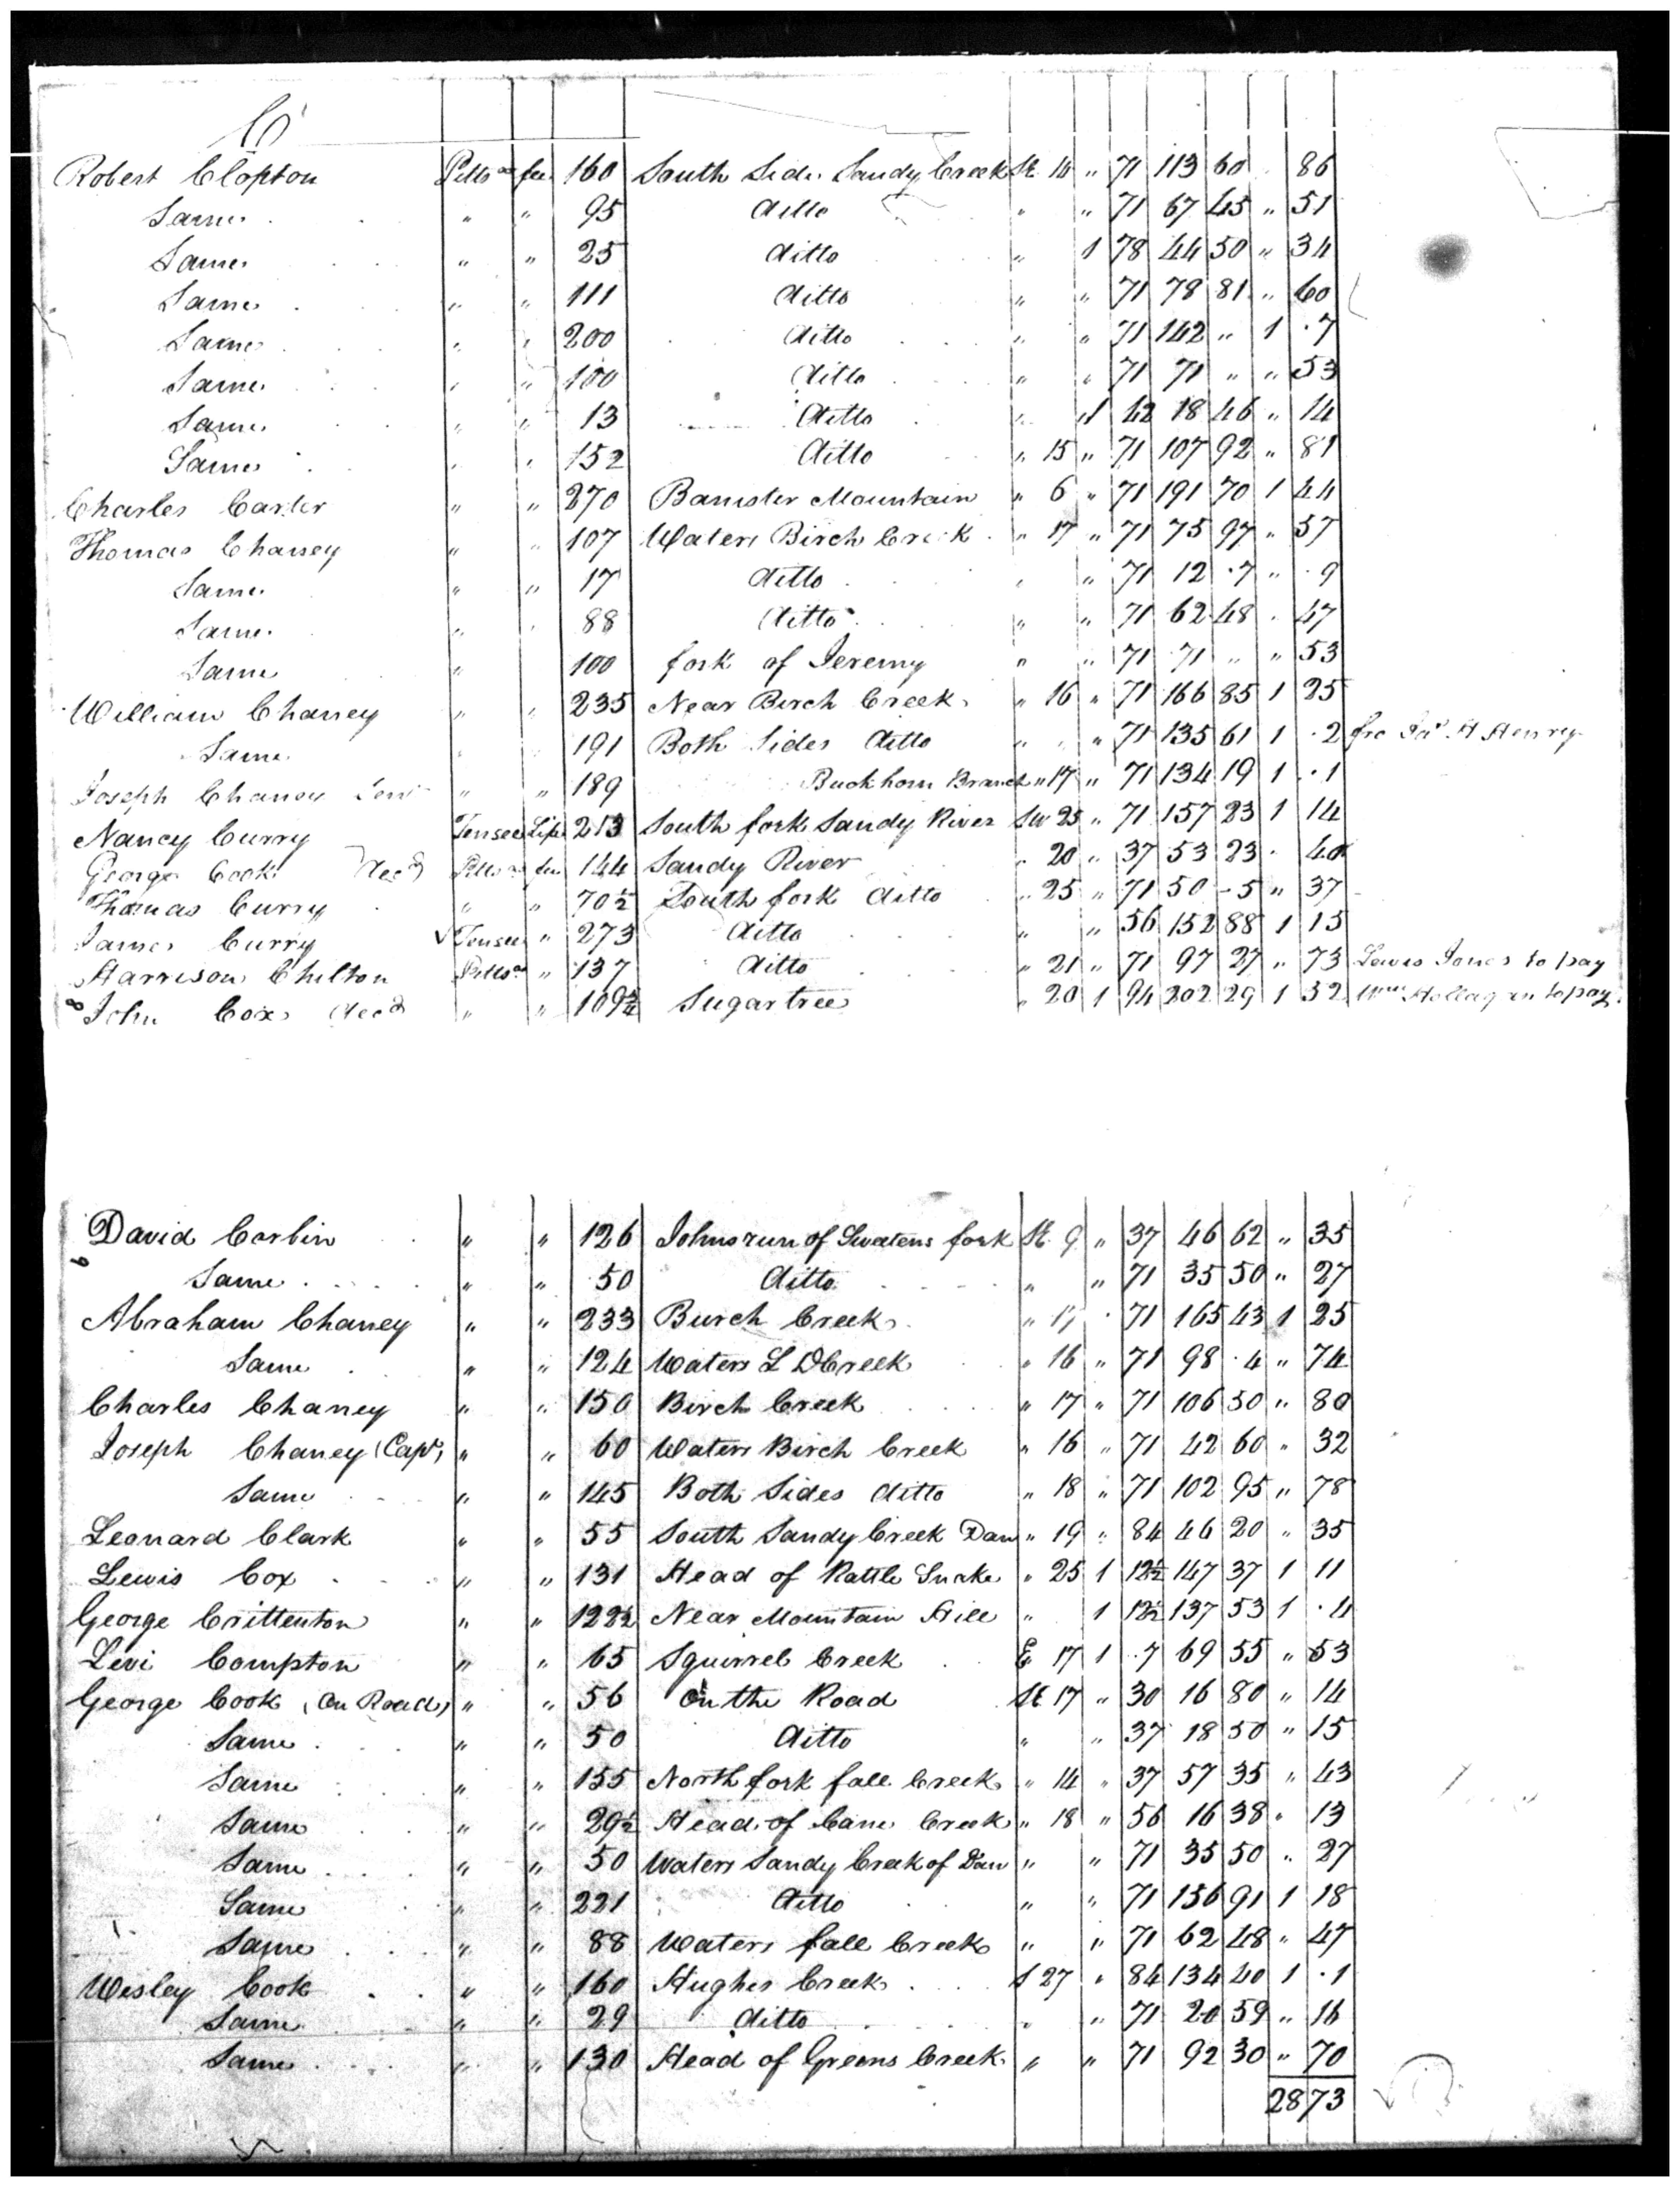 C
Robert Clopton Pittsa fee 160 South Side Sandy Creek SE 14 " 71 113 60 86
Same " " 95 ditto " " 71 67 45 " 51
Same " " 25 ditto " 1 78 44 50 " 34
Same " " 111 ditto " " 71 78 81 " 60
Same " " 200 ditto " " 71 142 " 1 .7
Same " " 100 ditto " " 71 71 " " 53
Same " " 13 ditto " 1 42 18 46 " 14
Same " " 152 ditto " 15 " 71 107 92 " 81
Charles Carter " " 270 Banister Mountain " 6 " 71 191 70 1 44
Thomas Chaney " " 107 Waters Birch Creek " 17 " 71 75 97 " 57
Same " " 17 ditto " " 71 12 .7 " .9
Same " " 88 ditto " " 71 62 48 . 47
Same " 100 fork of Jeremy " " 71 71 " " 53
William Chaney " " 235 Near Birch Creek " 16 " 71 166 85 1 25
Same 191 Both Sides ditto " " 71 135 61 1 .2 fro Henry
Joseph Chaney Senr " " 189 Buckhorn Branch " 17 " 71 134 19 1 .1
Nancy Curry Tensee Life 213 South fork Sandy River SW 25 " 71 157 23 1 14
George Cook Decd Pittsa fee 144 Sandy River " 20 " 37 53 23 " 40
Thomas Curry " " 70½ South fork ditto " 25 " 71 50 - 5 " 37
James Curry Tensee " 273 ditto " " 56 152 88 1 15
Harrison Chilton Pittsa " 137 ditto " 21 " 71 97 27 " 73 Lewis Jones to pay
John Cox decd " " 109¾ Sugartree " 20 1 94 202 29 1 52 Wm to pay
David Corbin " " 126 Johns run of Sweatens fork SE 9 " 37 46 62 " 35
Same " " 50 ditto " " 71 35 50 " 27
Abraham Chaney " " 233 Burch Creek " 17 . 71 165 43 1 25
Same " " 124 Waters L D Creek " 16 " 71 98 .4 " 74
Charles Chaney " " 150 Birch Creek " 17 " 71 106 50 " 80
Joseph Chaney (Capt) " " 60 Waters Birch Creek " 16 " 71 42 60 " 32
Same " " 145 Both Sides ditto " 18 " 71 102 95 " 78
Leonard Clark " " 55 South Sandy Creek Dan " 19 " 84 46 20 " 35
Lewis Cox " " 131 Head of Rattle Snake " 25 1 12½ 147 37 1 11
George Crittenton " " 122½ Near Mountain Hill " 1 12½ 137 53 1 .4
Levi Compton " " 65 Squirrel Creek E 17 1 .7 69 55 " 53
George Cook (On Road) " " 56 On the Road SE 17 " 30 16 80 " 14
Same " " 50 ditto " " 37 18 50 " 15
Same " " 155 North fork fall Creek " 14 " 37 57 35 " 43
Same " " 29½ Head of Cane Creek " 18 " 56 16 38 " 13
Same " " 50 Waters Sandy Creek of Dan " " 71 35 50 " 27
Same " " 221 ditto " " 71 156 91 1 18
Same " " 88 Waters fall Creek " " 71 62 48 " 47
Wesley Cook " " 160 Hughes Creek S 27 " 84 134 40 1 .1
Same " " 29 ditto " " 71 20 59 " 16
Same " " 130 Head of Greens Creek " " 71 92 30 " 70
28 73